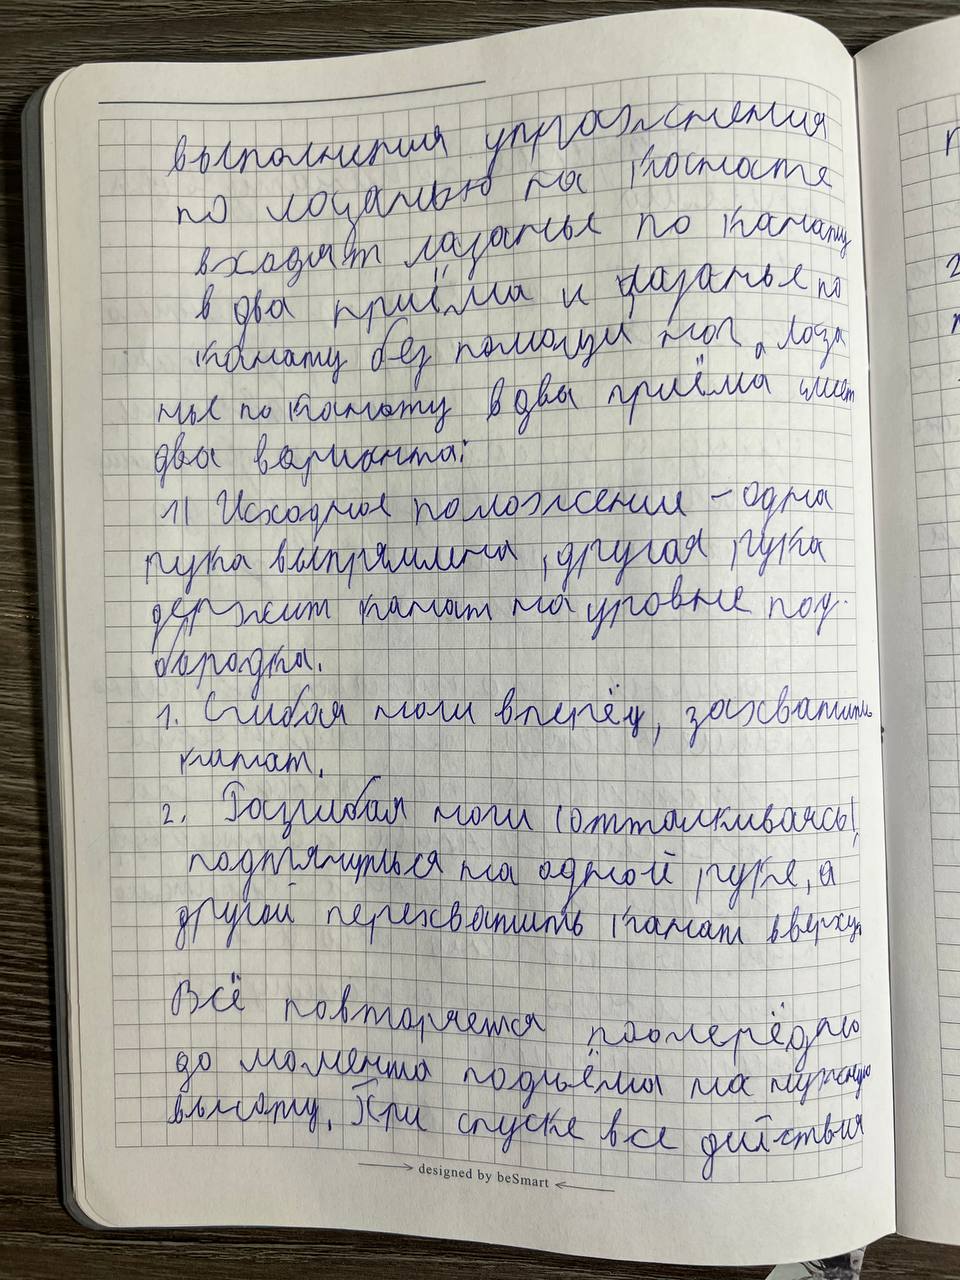 выполнения упражнения
по лазанью на канате
входят лазанье по канату
в два приёма и лазанье по
канату без помощи ног, лаза
нье по канату в два приёма имеет
два варианта:
1) Исходное положение – одна
рука выпрямлена, другая рука
держит канат на уровне под-
бородка.
1. Сгибая ноги вперёд, захватить
канат.
2. Разгибая ноги (отталкиваясь),
подтянуться на одной руке, а
другой перехватить канат вверху.
Всё повторяется поочерёдно
до момента подъёма на нужную
высоту. При спуске все действия
designed by beSmart